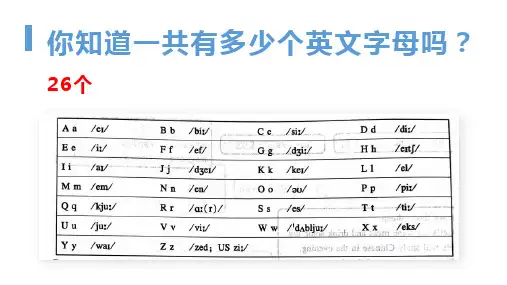 你知道一共有多少个英文字母吗？
26个
A a /eɪ/ B b /biː/ C c /siː/ D d /diː/
E e /iː/ F f /ef/ G g /dʒiː/ H h /eɪtʃ/
I i /aɪ/ J j /dʒeɪ/ K k /keɪ/ L l /el/
M m /em/ N n /en/ O o /əʊ/ P p /piː/
Q q /kjuː/ R r /ɑː(r)/ S s /es/ T t /tiː/
U u /juː/ V v /viː/ W w /ˈdʌbljuː/ X x /eks/
Y y /waɪ/ Z z /zed; US ziː/